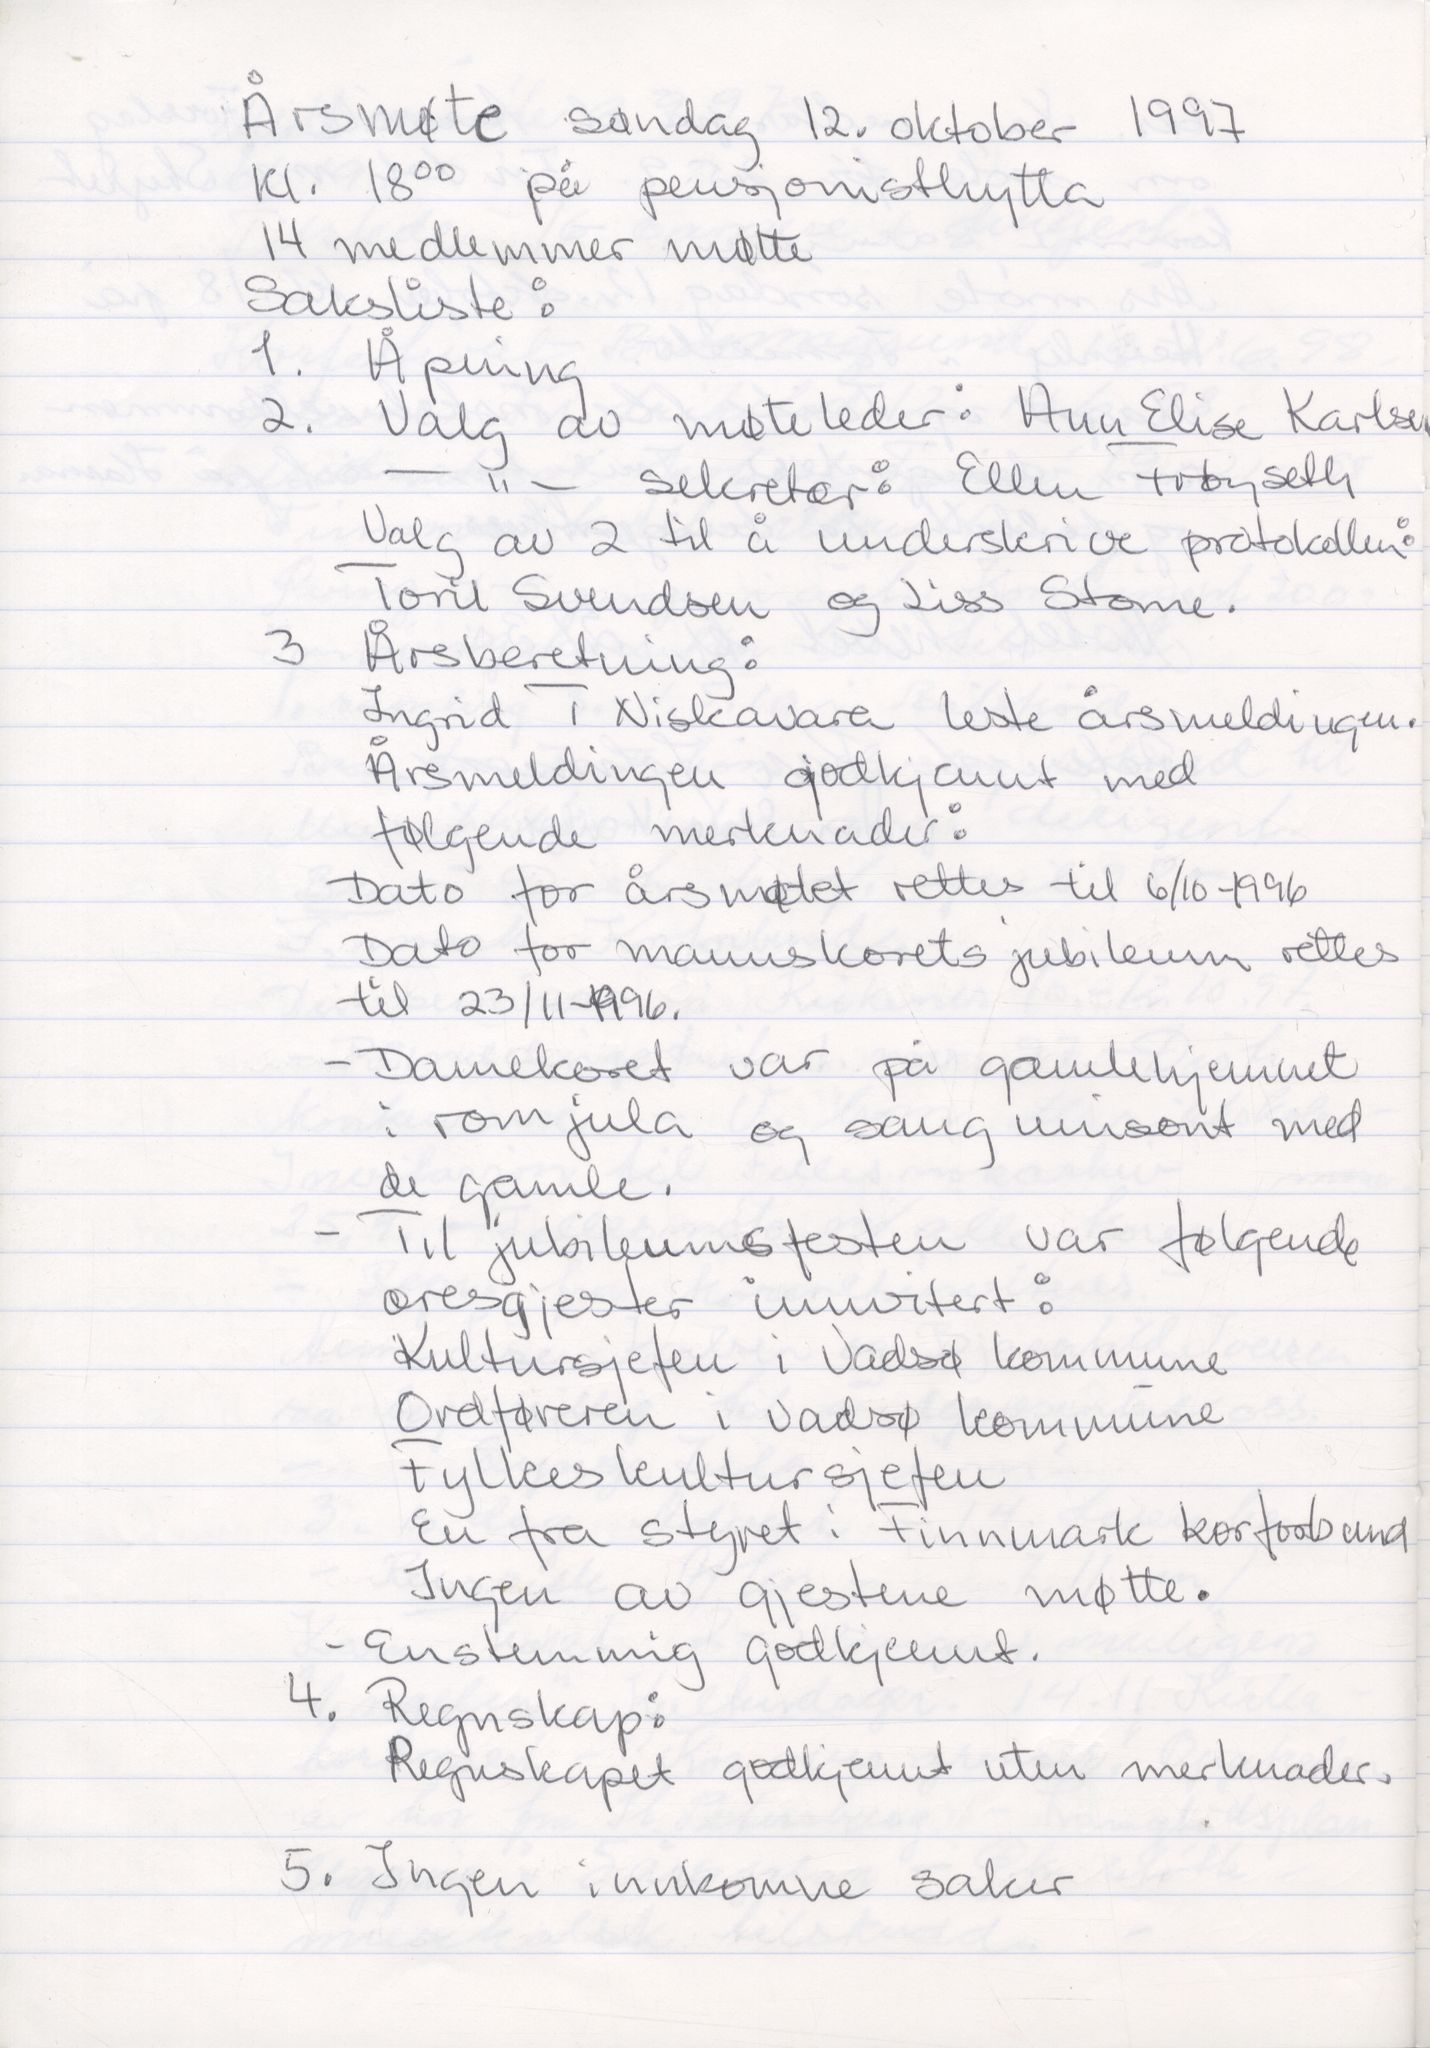 Årsmøte søndag 12. oktober 1997
Kl. 18⁰⁰ på pensjonisthytta
14 medlemmer møtte
Saksliste:
1. Åpning
2. Valg av møteleder: Ann Elise Karlsen
— " — sekretær: Ellen Frøyseth
Valg av 2 til å underskrive protokollen:
Toril Svendsen og Liss Stome.
3 Årsberetning:
Ingrid T Niskavara leste årsmeldingen.
Årsmeldingen godkjennt med
følgende merknader:
Dato for årsmøtet rettes til 6/10-1996
Dato for mannskorets jubileum rettes
til 23/11-1996.
- Damekoret var på gamlehjemmet
i romjula og sang unisont med
de gamle.
- Til jubileumsfesten var følgende
æresgjester innvitert:
Kultursjefen i Vadsø kommune
Ordføreren i Vadsø kommune
Fylkeskultursjefen
En fra styret i Finnmark korforbund
Ingen av gjestene møtte.
- Enstemmig godkjennt.
4. Regnskap:
Regnskapet godkjennt uten merknader.
5. Ingen innkomne saker